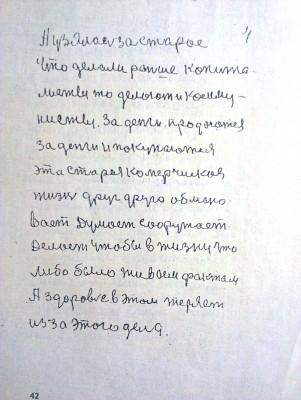 А узялась за старое
Что делали раньше Копита-
листы то делают и Комму-
нисты. За деньги продаются
за деньги и покупаются
эта старая Комерческая
жизнь друг друга обмано-
вает Думает Сооружает
Делает чтобы в жизни что
либо было
А здоровье в этом теряет
из за этого дела.
42